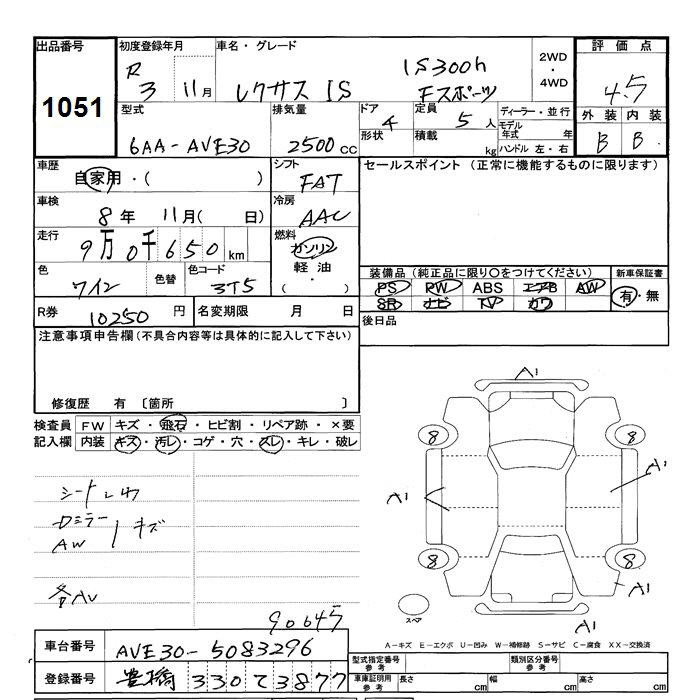 出品番号 初度登録年月 車名・グレード 2WD・4WD 評価点
1051 R 3 11月 レクサス IS IS300h Fスポーツ 4.5
型式 排気量 ドア 定員 ディーラー・並行 外装 内装
6AA-AVE30 2500cc 4 5人 モデル年式 年 B B
形状 積載 kg ハンドル 左・右
車歴 自家用・( ) シフト FAT セールスポイント (正常に機能するものに限ります)
車検 8年 11月( 日) 冷房 AAC
走行 9万0千650km 燃料 ガソリン 軽油 ( ・ )
色 ワイン 色替 色コード 3T5
装備品 (純正品に限り○をつけてください) 新車保証書
PS PW ABS エアB AW 有・無
SR ナビ TV カワ
R券 10250円 名変期限 月 日 後日品
注意事項申告欄 (不具合内容等は具体的に記入して下さい)
修復歴 有 〔箇所 〕
検査員 FW キズ・飛石・ヒビ割・リペア跡・×要
記入欄 内装 キズ・汚レ・コゲ・穴・スレ・キレ・破レ
シートしわ
Dミラー キズ
AW
A1
8 8
A1 A1
8 8
A1
スペア
A1
90645
A-キズ E-エクボ U-凹み W-補修跡 S-サビ C-腐食 XX-交換済
車台番号 AVE30-5083296
登録番号 豊橋 330 て 3877
型式指定番号 参考 類別区分番号 参考
車庫証明用 参考 長さ cm 幅 cm 高さ cm